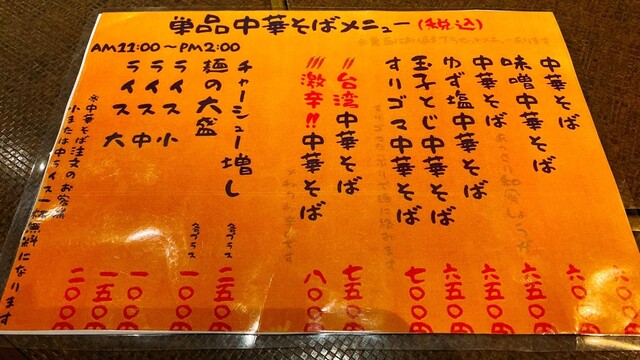 単品中華そばメニュー(税込)
AM11:00～PM2:00
中華そば 六
味噌中華そば 六五〇円
中華そば 六五〇円
ゆず塩中華そば 六五〇円
玉子とじ中華そば 六五〇円
すりゴマ中華そば 七〇〇円
〃台湾中華そば 七五〇円
〃激辛!!中華そば 八〇〇円
チャーシュー増し 各プラス 二五〇円
麺の大盛 各プラス 一〇〇円
ライス小 一〇〇円
ライス中 一五〇円
ライス大 二〇〇円
※中華そば注文のお客様
小または中ライス一杯無料になります